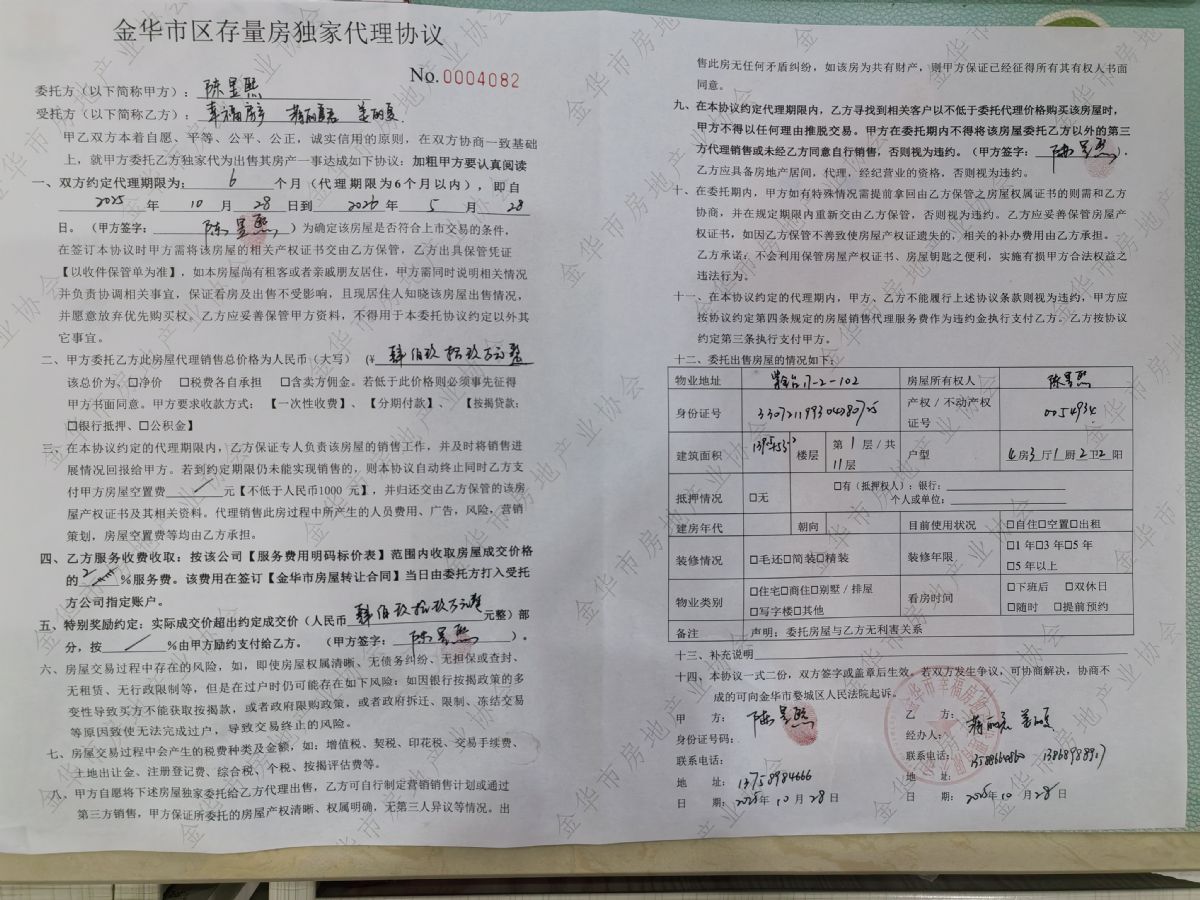 金华市区存量房独家代理协议
No.0004082
委托方（以下简称甲方）：陈昱熙
受托方（以下简称乙方）：幸福房产
甲乙双方本着自愿、平等、公平、公正，诚实信用的原则，在双方协商一致基础
上，就甲方委托乙方独家代为出售其房产一事达成如下协议：加粗甲方要认真阅读
一、双方约定代理期限为：6个月（代理期限为6个月以内），即自
2025年10月28日到2026年5月28
日。（甲方签字：陈昱熙）为确定该房屋是否符合上市交易的条件，
在签订本协议时甲方需将该房屋的相关产权证书交由乙方保管，乙方出具保管凭证
【以收件保管单为准】，如本房屋尚有租客或者亲戚朋友居住，甲方需同时说明相关情况
并负责协调相关事宜，保证看房及出售不受影响，且现居住人知晓该房屋出售情况，
并愿意放弃优先购买权。乙方应妥善保管甲方资料，不得用于本委托协议约定以外其
它事宜。
二、甲方委托乙方此房屋代理销售总价格为人民币（大写）（¥肆佰玖拾玖万元整
该总价为、□净价 □税费各自承担 □含卖方佣金。若低于此价格则必须事先征得
甲方书面同意。甲方要求收款方式：【一次性收费】、【分期付款】、【按揭贷款：
□银行抵押、□公积金】
三、在本协议约定的代理期限内，乙方保证专人负责该房屋的销售工作，并及时将销售进
展情况回报给甲方。若到约定期限仍未能实现销售的，则本协议自动终止同时乙方支
付甲方房屋空置费/元【不低于人民币1000 元】，并归还交由乙方保管的该房
屋产权证书及其相关资料。代理销售此房过程中所产生的人员费用、广告，风险，营销
策划，房屋空置费等均由乙方承担。
四、乙方服务收费收取：按该公司【服务费用明码标价表】范围内收取房屋成交价格
的2%服务费。该费用在签订【金华市房屋转让合同】当日由委托方打入受托
方公司指定账户。
五、特别奖励约定：实际成交价超出约定成交价（人民币肆佰玖拾玖万元整元整）部
分，按/%由甲方励约支付给乙方。（甲方签字：陈昱熙）。
六、房屋交易过程中存在的风险，如，即使房屋权属清晰、无债务纠纷、无担保或查封、
无租赁、无行政限制等，但是在过户时仍可能存在如下风险：如因银行按揭政策的多
变性导致买方不能获取按揭款，或者政府限购政策，或者政府拆迁、限制、冻结交易
等原因致使无法完成过户，导致交易终止的风险。
七、房屋交易过程中会产生的税费种类及金额，如：增值税、契税、印花税、交易手续费、
土地出让金、注册登记费、综合税、个税、按揭评估费等。
八、甲方自愿将下述房屋独家委托给乙方代理出售，乙方可自行制定营销销售计划或通过
第三方销售，甲方保证所委托的房屋产权清晰、权属明确，无第三人异议等情况。出
售此房无任何矛盾纠纷，如该房为共有财产，则甲方保证已经征得所有其有权人书面
同意。
九、在本协议约定代理期限内，乙方寻找到相关客户以不低于委托代理价格购买该房屋时，
甲方不得以任何理由推脱交易。甲方在委托期内不得将该房屋委托乙方以外的第三
方代理销售或未经乙方同意自行销售，否则视为违约。（甲方签字：陈昱熙）.
乙方应具备房地产居间，代理，经纪营业的资格，否则视为违约。
十、在委托期内，甲方如有特殊情况需提前拿回由乙方保管之房屋权属证书的则需和乙方
协商，并在规定期限内重新交由乙方保管，否则视为违约。乙方应妥善保管房屋产
权证书，如因乙方保管不善致使房屋产权证遗失的，相关的补办费用由乙方承担。
乙方承诺：不会利用保管房屋产权证书、房屋钥匙之便利，实施有损甲方合法权益之
违法行为。
十一、在本协议约定的代理期内，甲方、乙方不能履行上述协议条款则视为违约，甲方应
按协议约定第四条规定的房屋销售代理服务费作为违约金执行支付乙方。乙方按协议
约定第三条执行支付甲方。
十二、委托出售房屋的情况如下：
物业地址 7-2-102 房屋所有权人 陈昱熙
身份证号 产权/不动产权证号 0054934
建筑面积 楼层 第1层/共11层 户型 4房3厅1厨2卫2阳
抵押情况 □无 □有（抵押权人）：银行：
个人或单位：
建房年代 朝向 目前使用状况 □自住□空置□出租
装修情况 □毛还□简装□精装 装修年限 □1年□3年□5年
□5年以上
物业类别 □住宅□商住□别墅/排屋
□写字楼□其他 看房时间 □下班后 □双休日
□随时 □提前预约
备注 声明：委托房屋与乙方无利害关系
十三、补充说明
十四、本协议一式二份，双方签字或盖章后生效。若双方发生争议，可协商解决，协商不
成的可向金华市婺城区人民法院起诉。
甲 方：陈昱熙
身份证号码：
联系电话：
地 址：13758984666
日 期：2025年10月28日
乙 方：
经办人：
联系电话：
地 址：
日 期：2025年10月28日
金华市房地产业协会